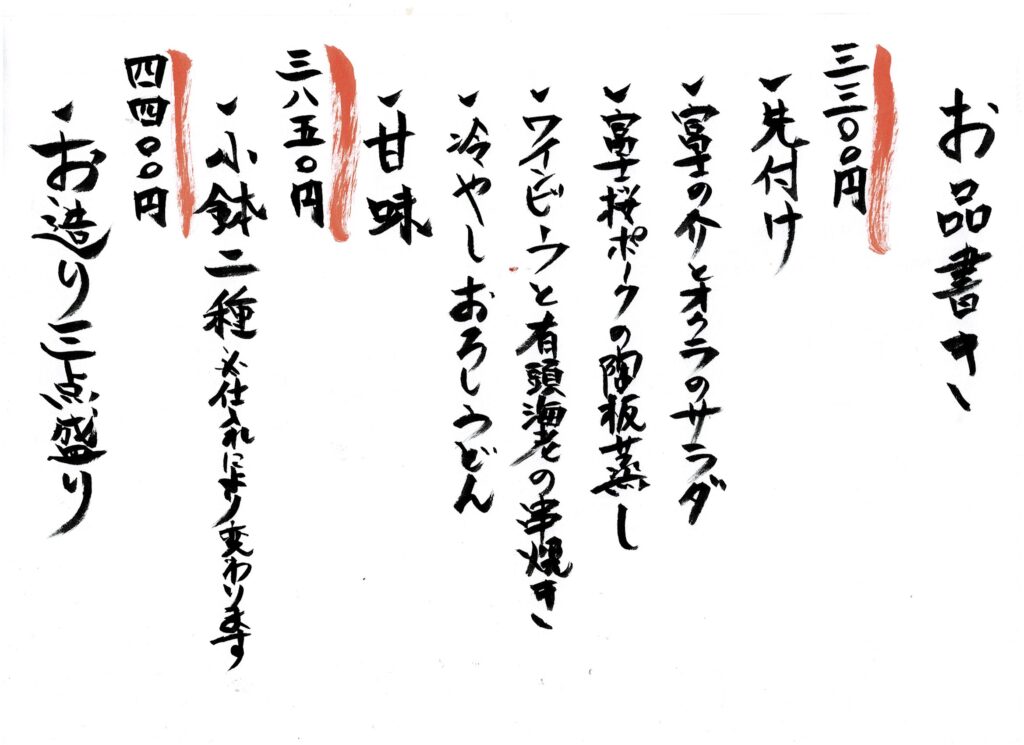 お品書き
三三〇〇円
先付け
富士の介とオクラのサラダ
富士桜ポークの陶板蒸し
ワインビーフと有頭海老の串焼き
冷やしおろしうどん
甘味
三八五〇円
小鉢二種 ※仕入れにより変わります
四四〇〇円
お造り三点盛り